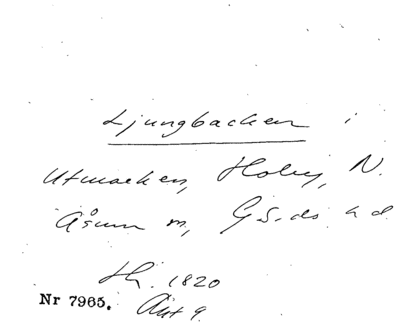 Ljungbacken i
Utmarken, Holej, N.
Åsum sn, Gärds hd
Hk. 1820
Nr 7965. Akt 9